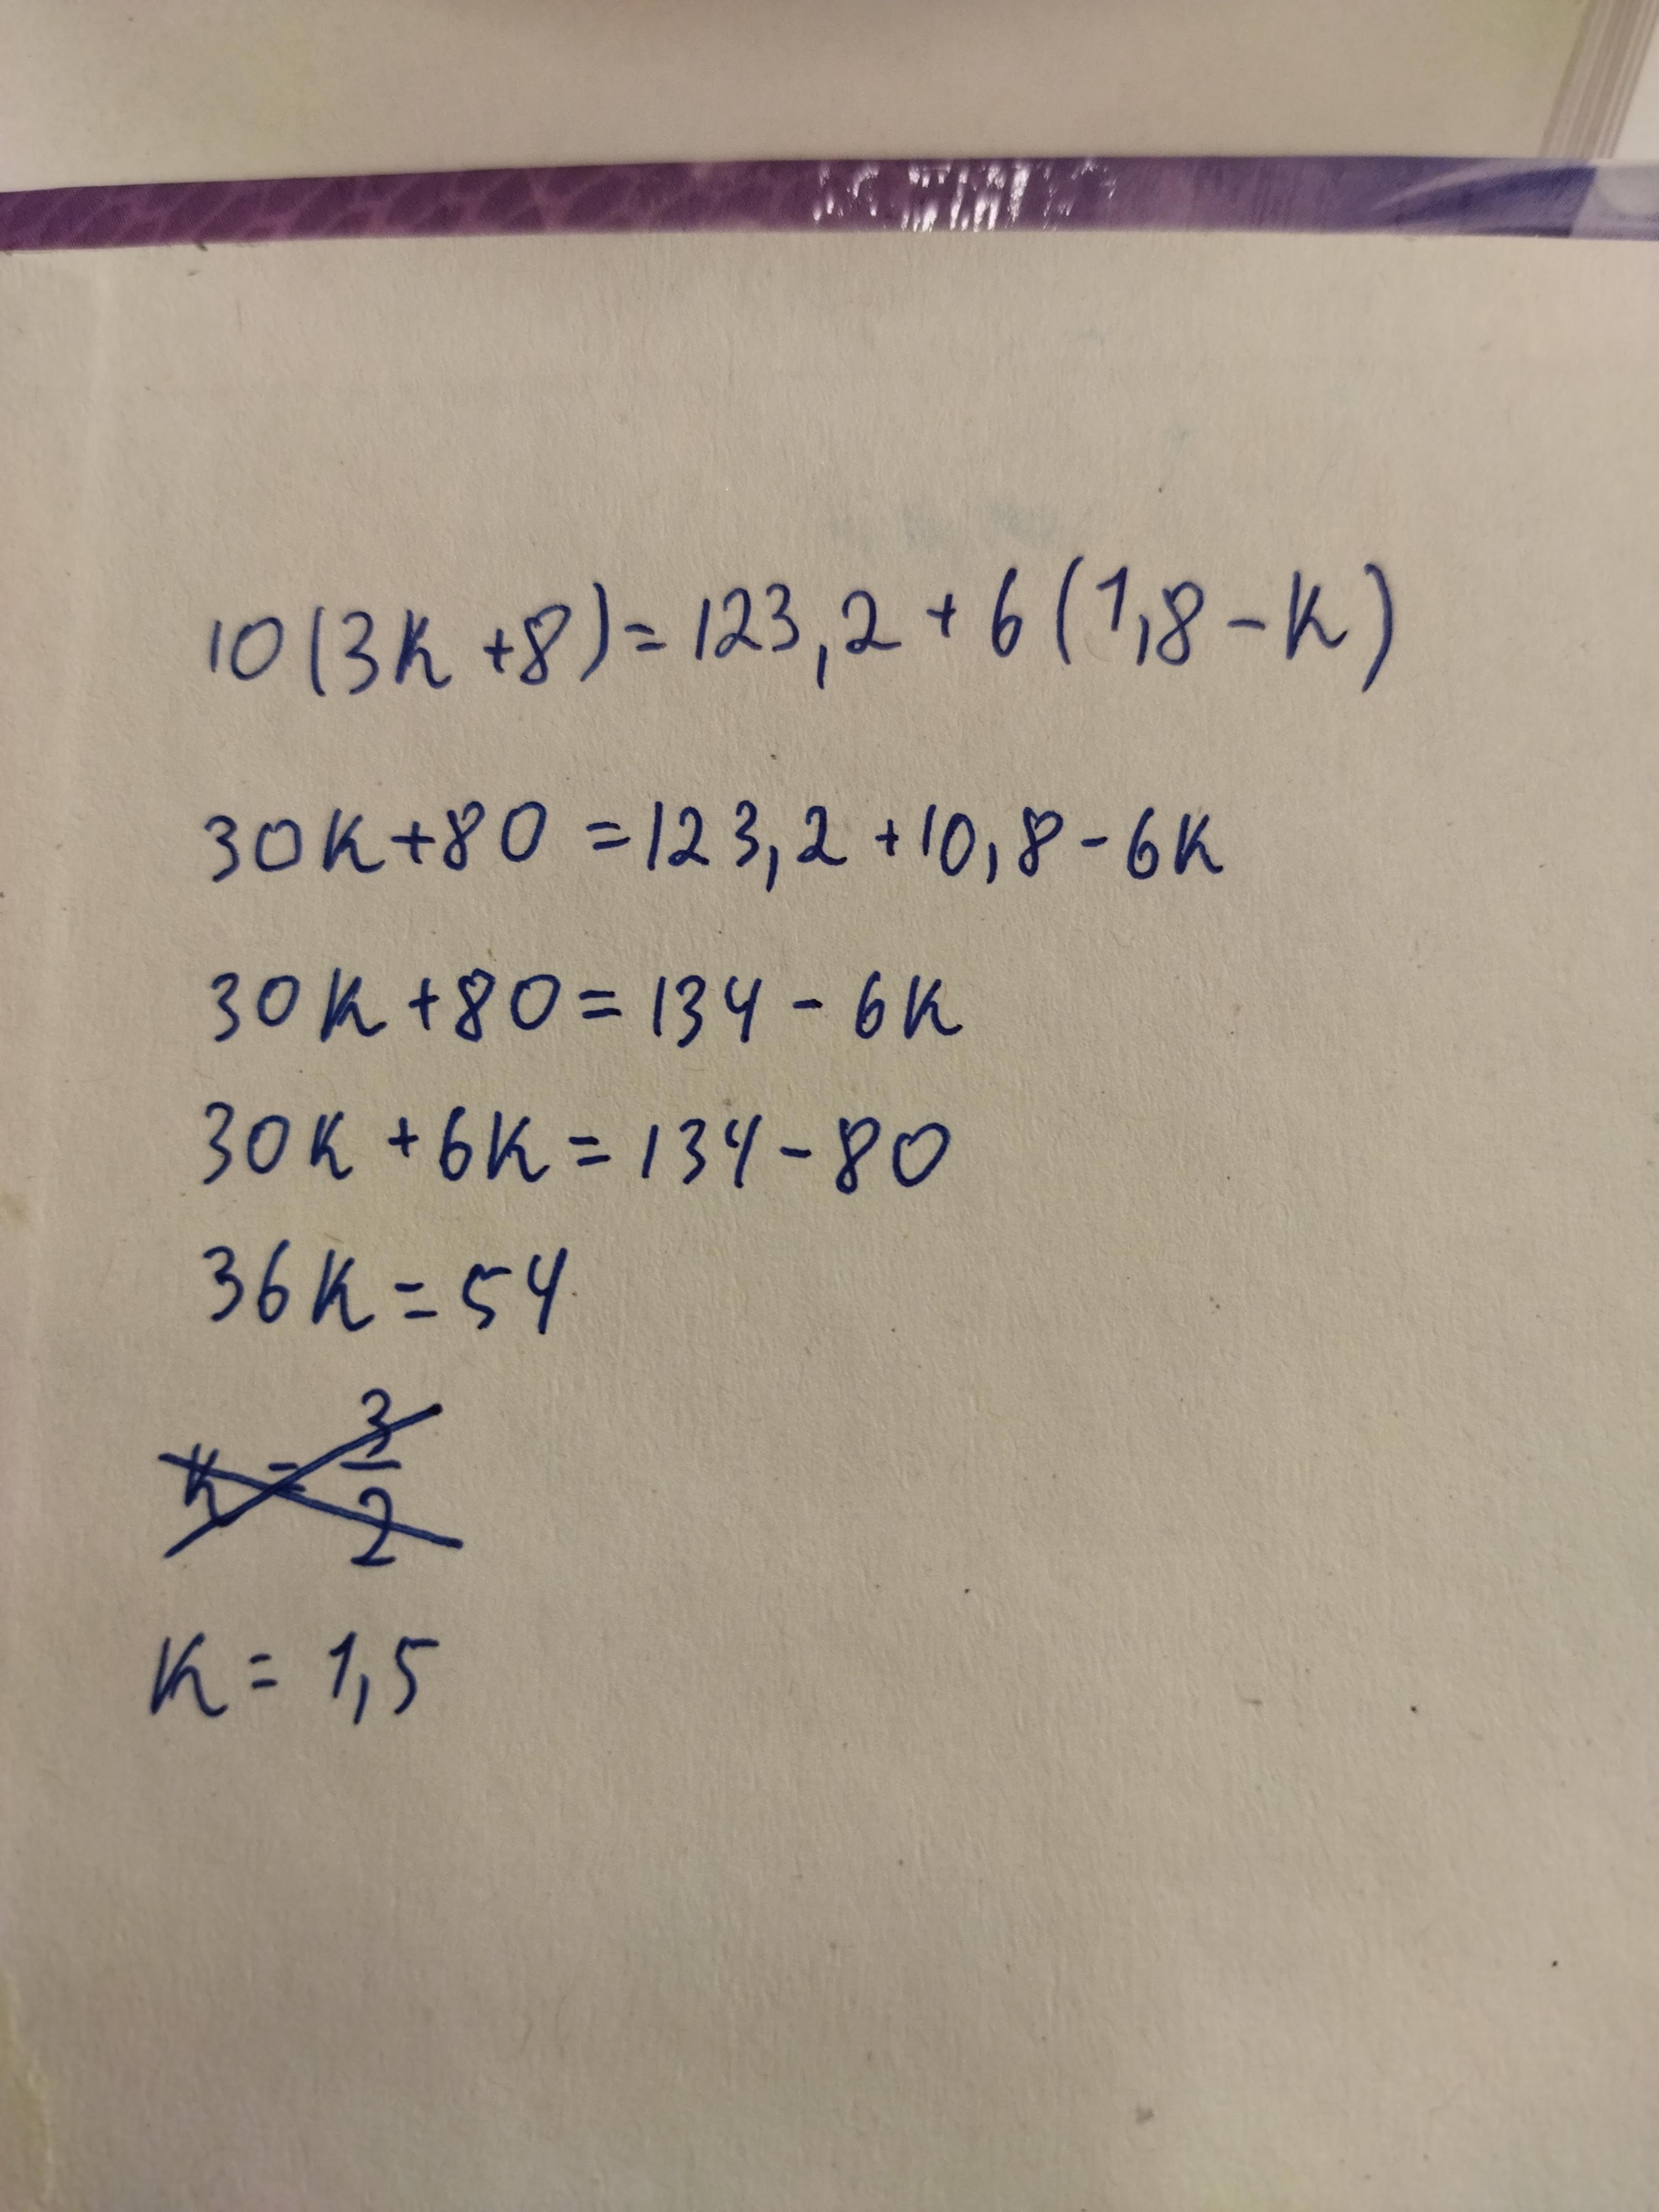 10(3k+8)=123,2+6(1,8-k)
30k+80=123,2+10,8-6k
30k+80=134-6k
30k+6k=134-80
36k=54
k=3/2
k=1,5